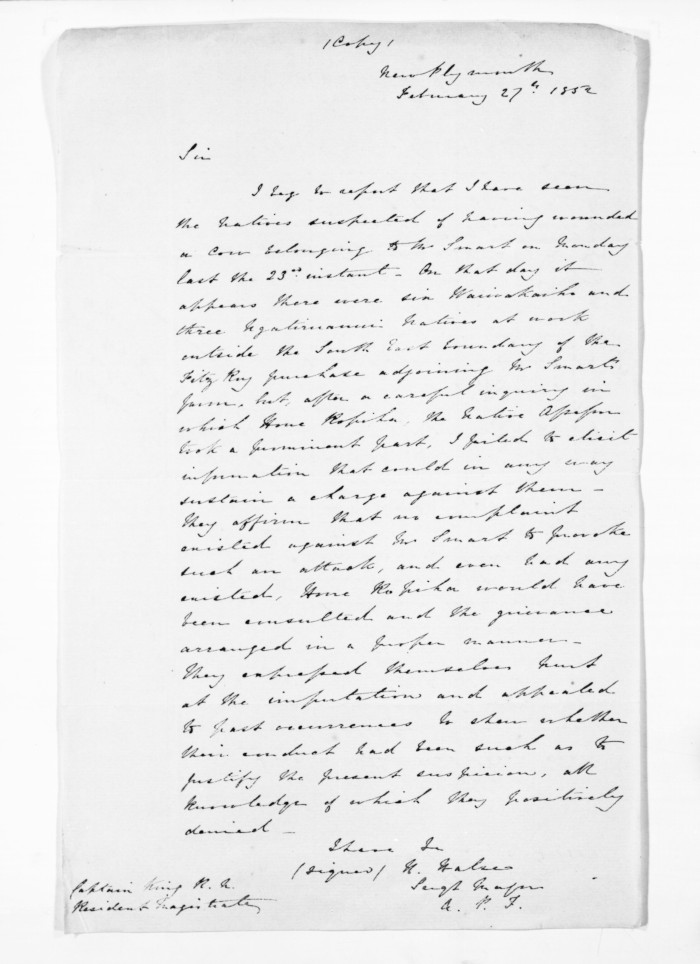 (Copy)
New Plymouth
February 27th 1852
Sir
I beg to report that I have seen
the Natives suspected of having wounded
a Cow belonging to Mr Smart on Monday
last the 23rd instant – On that day it
appears there were six Waiwakaiho and
three Ngatiruanui Natives at work
outside the South East boundary of the
Fitz Roy purchase adjoining Mr Smart's
farm, but, after a careful inquiry in
which Hone Ropiha, the Native Assessor
took a prominent part, I failed to elicit
information that could in any way
sustain a charge against them –
They affirm that no complaint
existed against Mr Smart to provoke
such an attack, and even had any
existed, Hone Ropiha would have
been consulted and the grievance
arranged in a proper manner –
They expressed themselves hurt
at the imputation and appealed
to past occurrences to shew whether
their conduct had been such as to
justify the present suspicion, all
knowledge of which they positively
denied –
I have &c
(signed) H. Halse
Sergt Major
A. P. F.
Captain King R. N.
Resident Magistrate